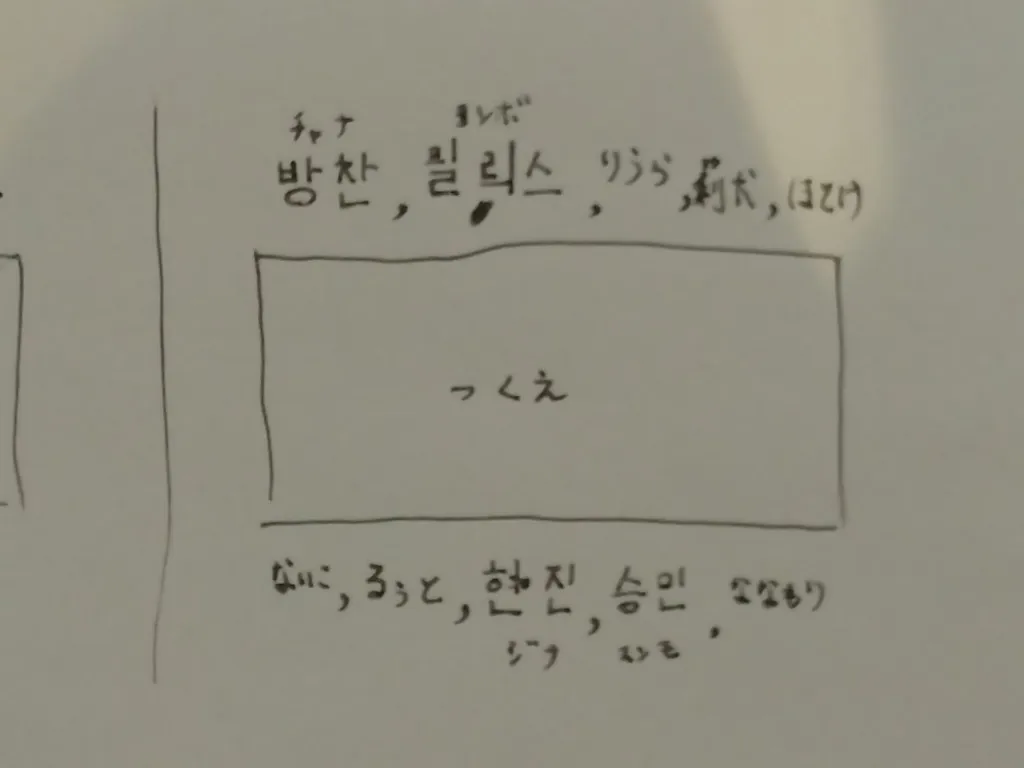 チャナ ヨンボ
방찬, 필릭스, りうら, 莉犬, ほとけ
つくえ
ないこ, るぅと, 현진, 승민, ななもり
ジナ スンモ